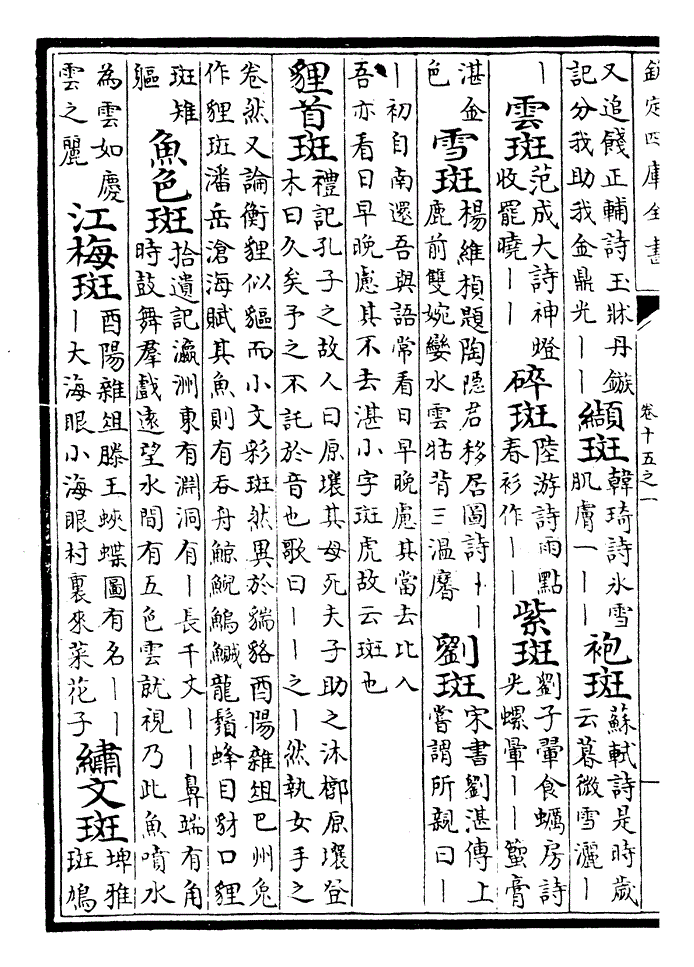 欽定四庫全書
卷十五之一
又追餞正輔詩玉牀丹鏃
記分我助我金鼎光丨丨
纈斑
韓琦詩氷雪
肌膚一丨丨
袍斑
蘇軾詩是時歲
云暮微雪灑丨
丨
雲斑
范成大詩神燈
收罷曉丨丨
碎斑
陸游詩雨點
春衫作丨丨
紫斑
劉子翬食蠣房詩
光螺暈丨丨蟹膏
湛金
色
雪斑
楊維楨題陶隱君移居圖詩丨丨
鹿前雙婉孌水雲牯背三溫黁
劉斑
宋書劉湛傳上
嘗謂所親曰丨
丨初自南還吾與語常看日早晚慮其當去比入
吾亦看日早晚慮其不去湛小字斑虎故云斑也
貍首斑
禮記孔子之故人曰原壤其母死夫子助之沐槨原壤登
木曰久矣予之不託於音也歌曰丨丨之丨然執女手之
卷然又論衡貍似貙而小文彩斑然異於貒貉酉陽雜俎巴州兔
作貍斑潘岳滄海賦其魚則有吞舟鯨鯢鰞鱡龍鬚蜂目豺口貍
斑雉
軀
魚色斑
拾遺記瀛洲東有淵洞有丨長千丈丨丨鼻端有角
時鼓舞羣戲遠望水間有五色雲就視乃此魚噴水
為雲如慶
雲之麗
江梅斑
酉陽雜俎滕王蛺蝶圖有名丨丨
丨大海眼小海眼村裏來菜花子
繡文斑
埤雅
斑鳩